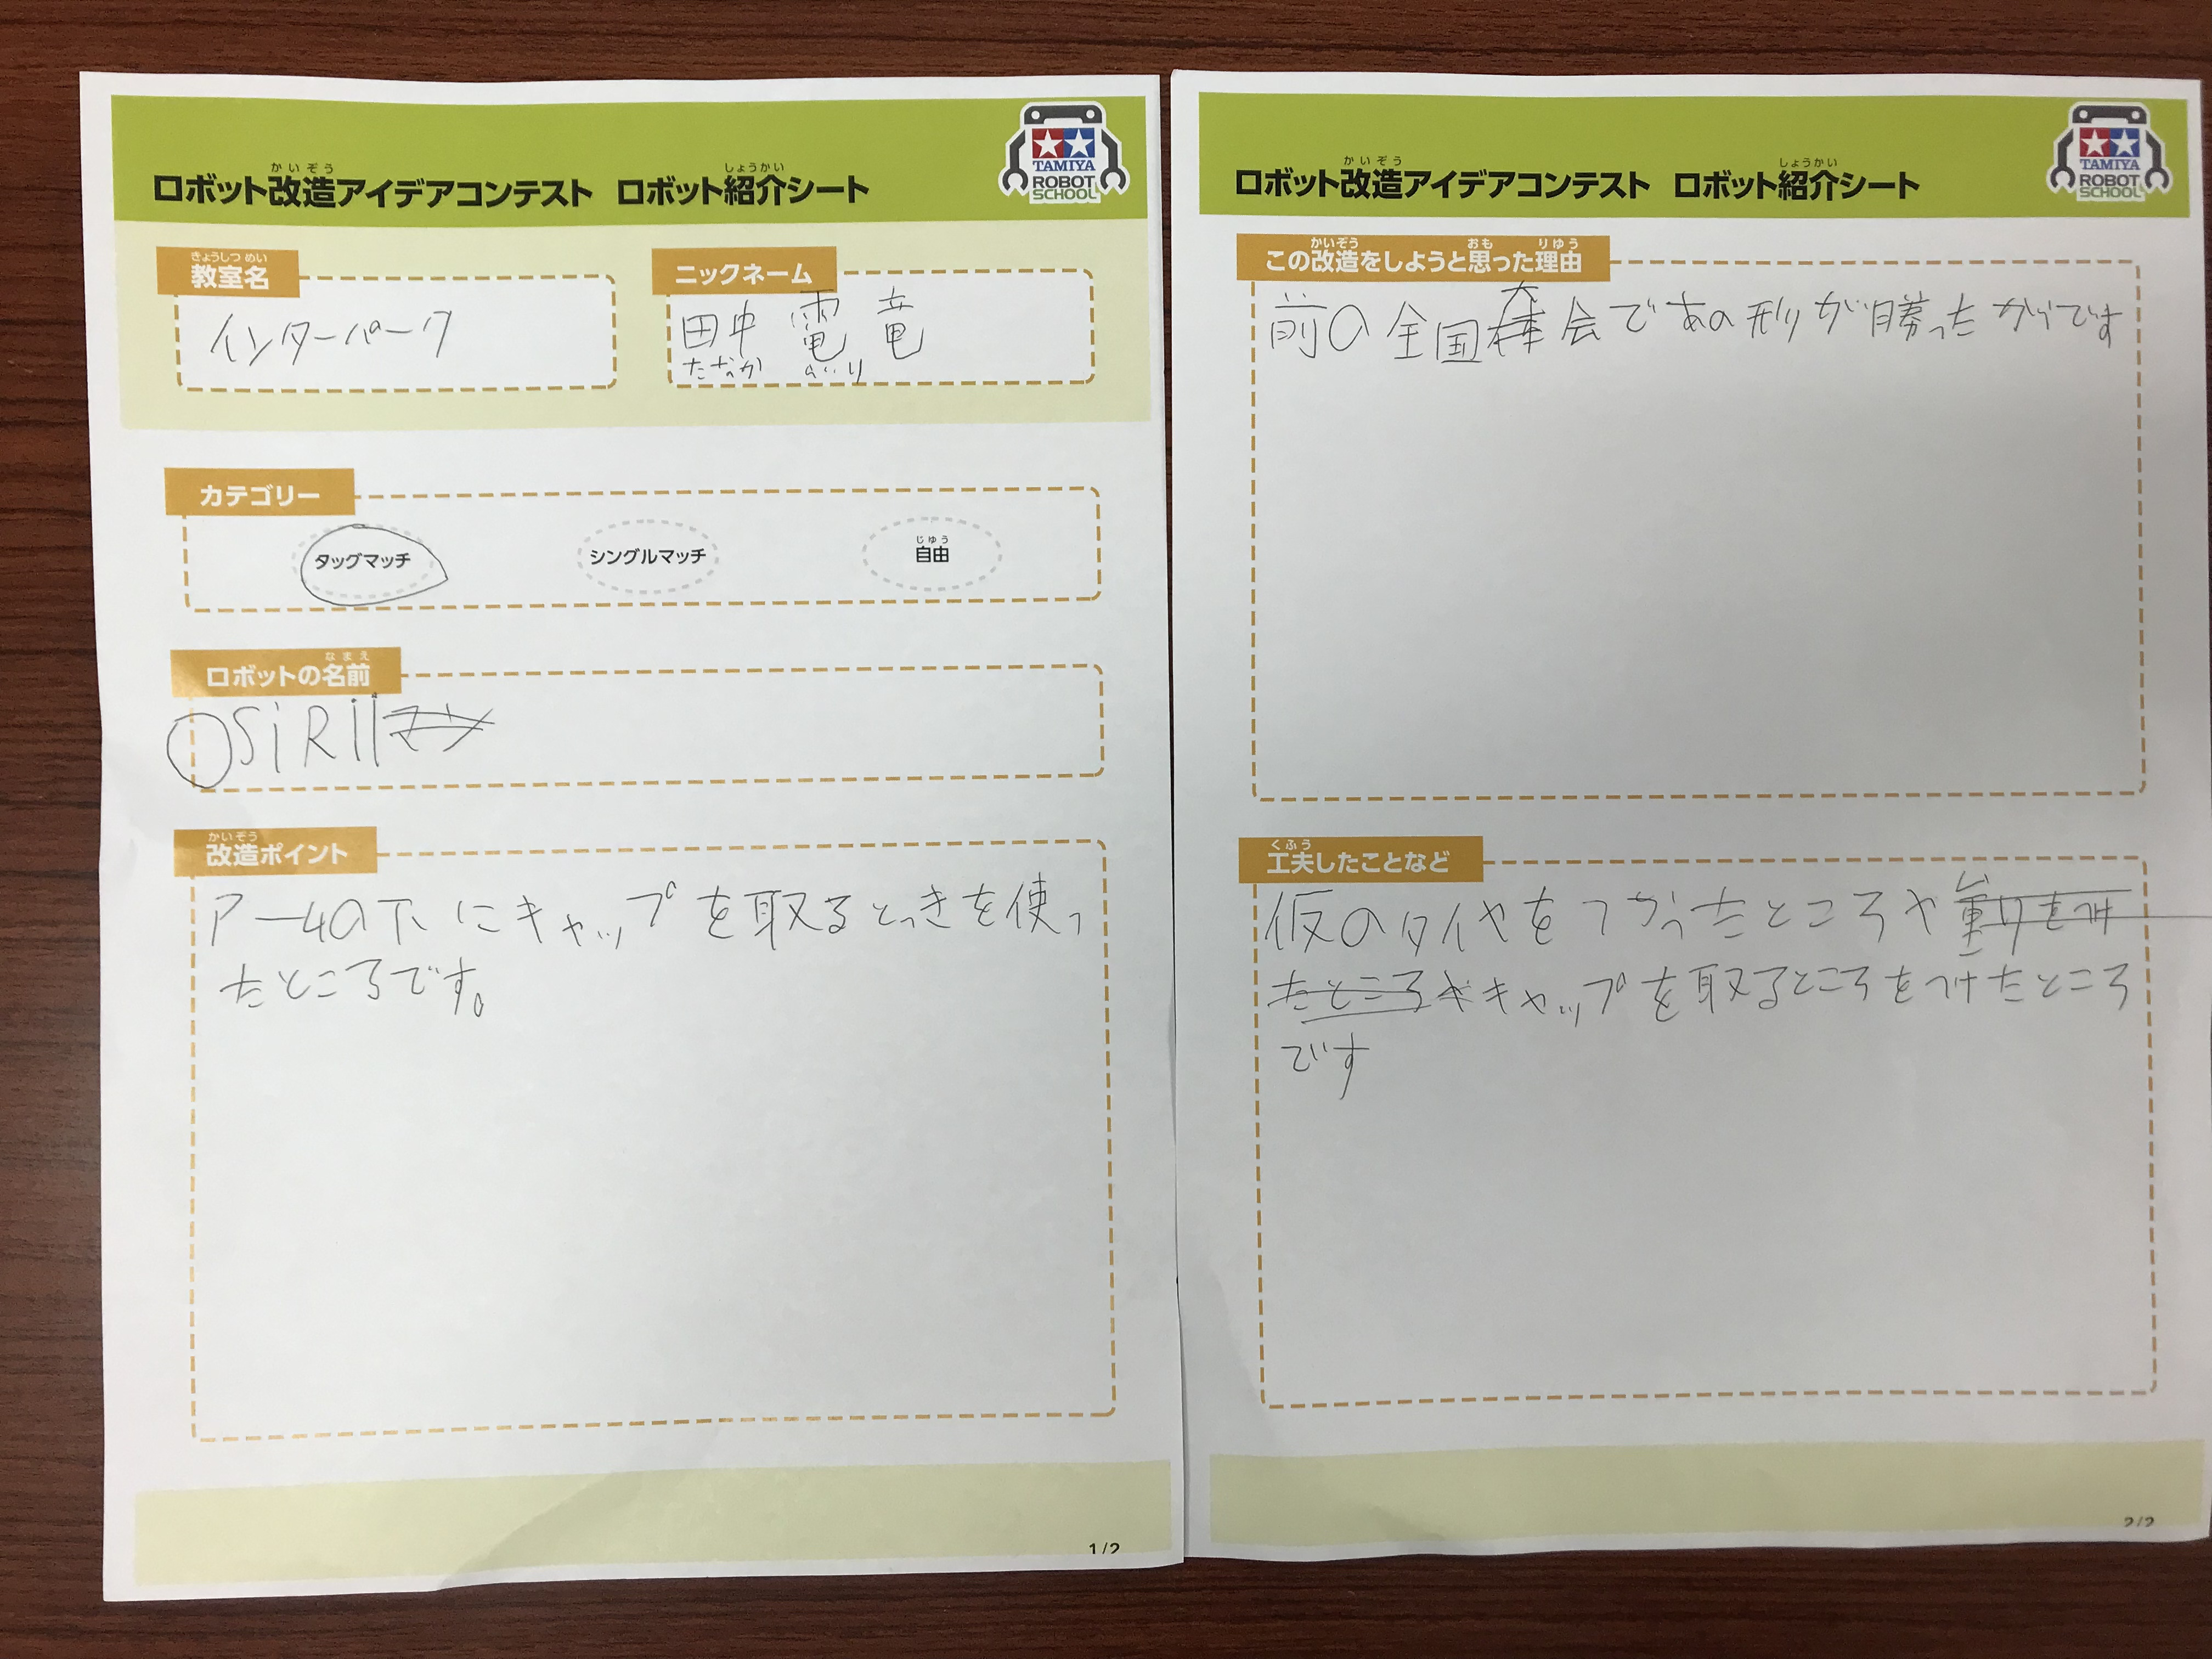 ロボット改造アイデアコンテスト ロボット紹介シート
かいぞう
しょうかい
TAMIYA
ROBOT
SCHOOL
教室名
きょうしつ めい
インターパーク
ニックネーム
田中 電竜
たなか
カテゴリー
タッグマッチ
シングルマッチ
自由
じゆう
ロボットの名前
なまえ
OSiRi
改造ポイント
かいぞう
アームの下にキャップを取るとっきを使っ
たところです。
1/2
ロボット改造アイデアコンテスト ロボット紹介シート
かいぞう
しょうかい
TAMIYA
ROBOT
SCHOOL
この改造をしようと思った理由
かいぞう
おも
りゆう
前の全国大会であの形が勝ったからです
工夫したことなど
くふう
仮のタイヤをつかったところや重りをつけ
たところやキャップを取るところをつけたところ
です
2/2